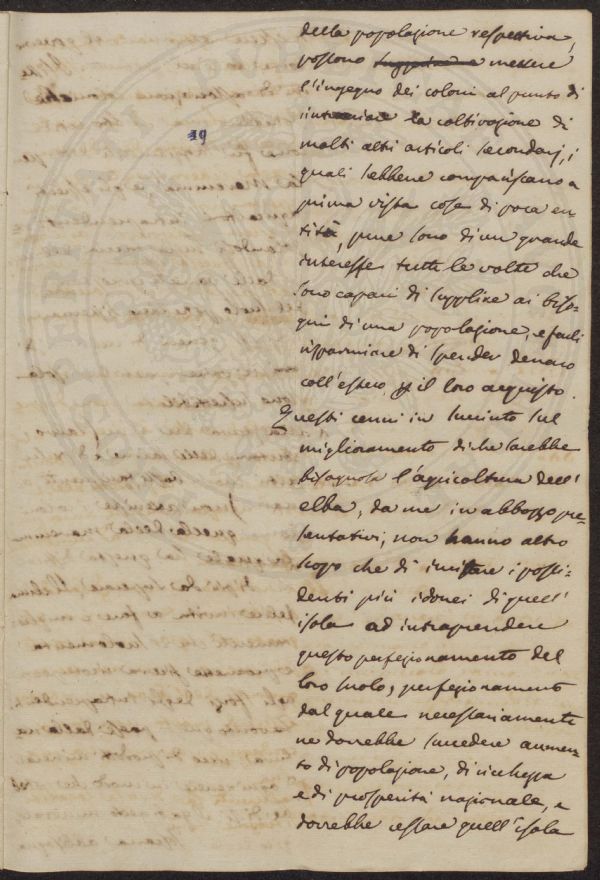 19
della popolazione respettiva,
possono mettere
l'ingegno dei coloni al punto di
la coltivazione di
molti altri articoli secondarj, i
quali sebbene compariscano a
prima vista cose di poca en-
tità, pure sono di un grande
interesse tutte le volte che
sono capaci di supplire ai biso-
gni di una popolazione, e farli
risparmiare di spender denaro
coll'estero pr il loro acquisto.
Questi cenni in succinto sul
miglioramento di che sarebbe
bisognosa l'agricoltura dell'
elba, da me in abbozzo pre-
sentativi, non hanno altro
scopo che di i possi-
denti più idonei di quell'
isola ad intraprendere
questo perfezionamento del
loro suolo, perfezionamento
dal quale necessariamente
ne dovrebbe succedere aumen-
to di popolazione, di ricchezza
e di prosperità nazionale, e
dovrebbe cessare quell'isola